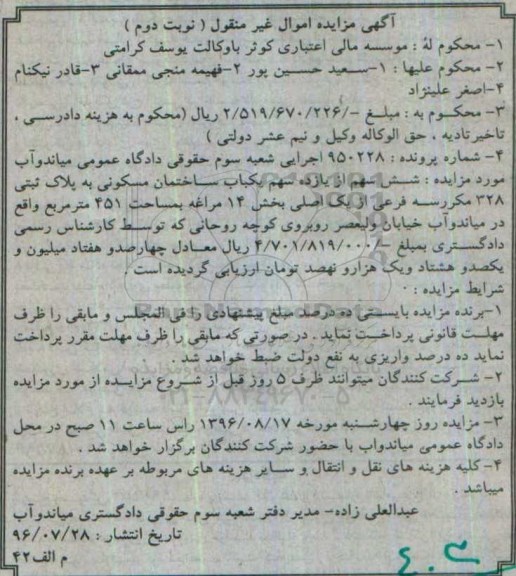 آگهی مزایده اموال غیر منقول ( نوبت دوم )
۱- محکوم لهُ : موسسه مالی اعتباری کوثر باوکالت یوسف کرامتی
۲- محکوم علیها : ۱-سـعید حسـین پور ۲-فهیمه منجی ممقانی ۳-قادر نیکنام
۴-اصغر علینژاد
۳- محکـوم به : مبلـغ -/۲/۵۱۹/۶۷۰/۲۲۶ ریال (محکوم به هزینه دادرسـی ،
تاخیرتادیه ، حق الوکاله وکیل و نیم عشر دولتی )
۴- شماره پرونده : ۹۵۰۲۲۸ اجرایی شعبه سوم حقوقی دادگاه عمومی میاندوآب
مورد مزایده : شـش سهم از یازده سهم یکباب سـاختمان مسکونی به پلاک ثبتی
۳۲۸ مکررسـه فرعی از یک اصلی بخش ۱۴ مراغه بمساحت ۴۵۱ مترمربع واقع
در میاندوآب خیابان ولیعصر روبروی کوچه روحانی که توسـط کارشناس رسمی
دادگسـتری بمبلغ -/۴/۷۰۱/۸۱۹/۰۰۰ ریال معـادل چهارصدو هفتاد میلیون و
یکصدو هشتاد ویک هزارو نهصد تومان ارزیابی گردیده است
شرایط مزایده :
۱-برنده مزایده بایسـتی ده درصد مبلغ پیشنهادی را فی المجلس و مابقی را ظرف
مهلـت قانونی پرداخـت نماید . در صورتی که مابقی را ظرف مهلت مقرر پرداخت
نماید ده درصد واریزی به نفع دولت ضبط خواهد شد .
۲- شـرکت کنندگان میتوانند ظرف ۵ روز قبل از شـروع مزایـده از مورد مزایده
بازدید فرمایند .
۳- مزایده روز چهارشـنبه مورخه ۱۳۹۶/۰۸/۱۷ راس ساعت ۱۱ صبح در محل
دادگاه عمومی میاندواب با حضور شرکت کنندگان برگزار خواهد شد .
۴- کلیه هزینه های نقل و انتقال و سـایر هزینه های مربوطه بر عهده برنده مزایده
میباشد .
عبدالعلی زاده- مدیر دفتر شعبه سوم حقوقی دادگستری میاندوآب
تاریخ انتشار : ۹۶/۰۷/۲۸
م الف۴۲